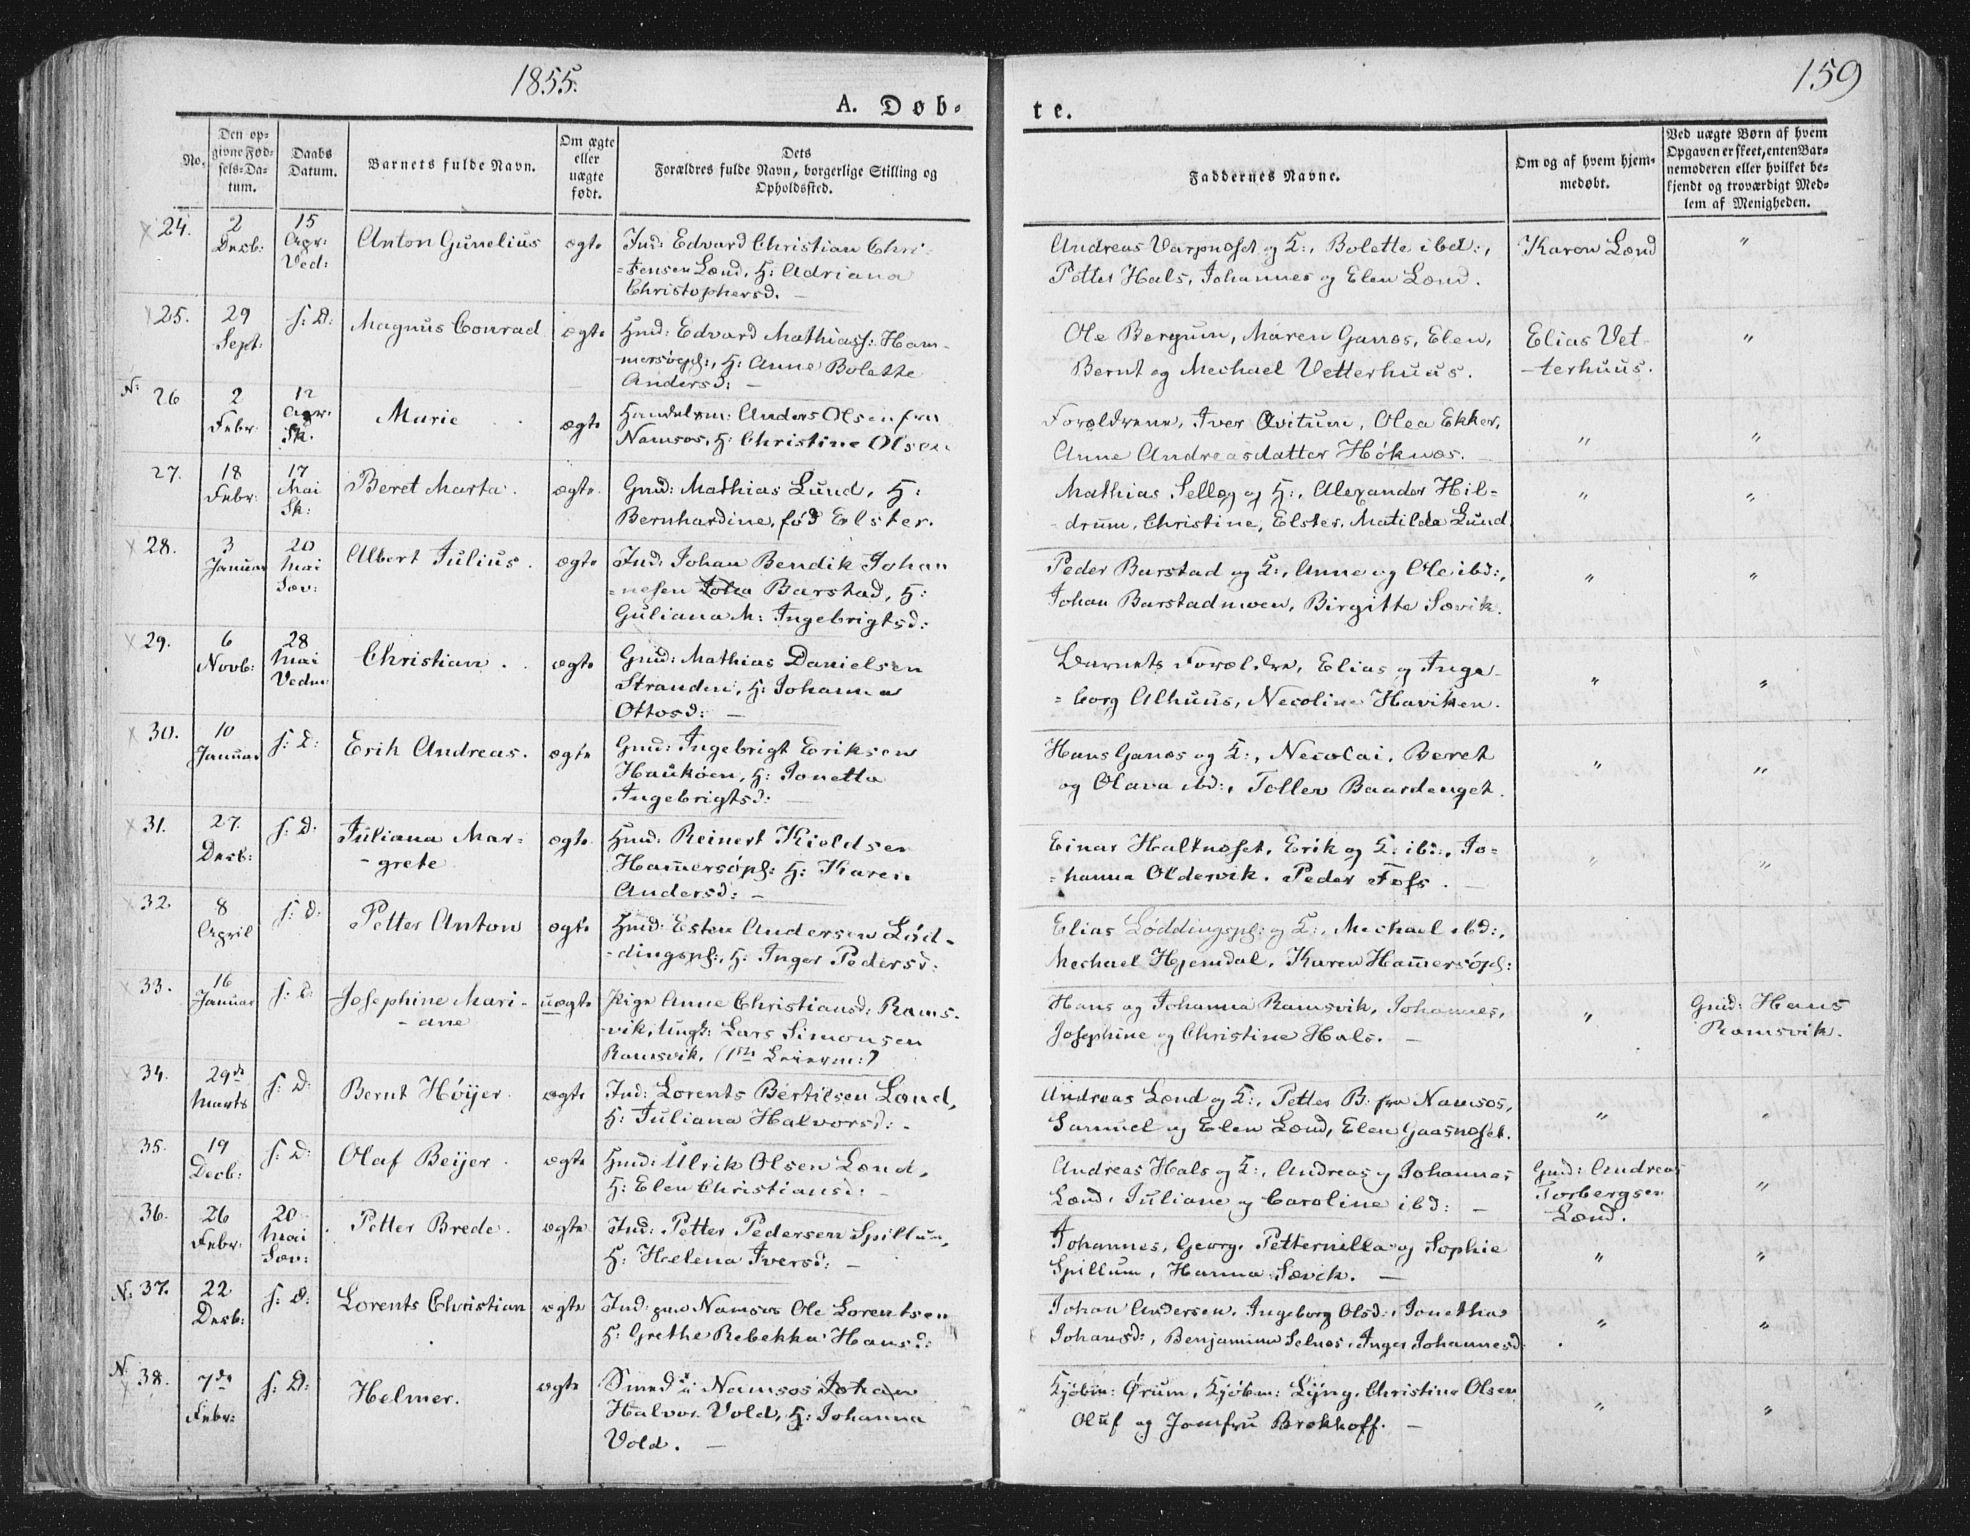 1855.
159
A. Døb-
te.
No.
Den op-
givne Fød-
sels-Da-
tum.
Daabs
Datum.
Barnets fulde Navn.
Om ægte
eller
uægte
født.
Dets
Forældres fulde Navn, borgerlige Stilling og
Opholdssted.
Faddernes Navne.
Om og af hvem hjem-
medøbt.
Ved uægte Børn af hvem
Opgaven er skeet, enten Bar-
nemoderen eller hvilket be-
kjendt og troværdigt Med-
lem af Menigheden.
24.
2
Decb:
15
Apr:
Ved:
Anton Gunelius
ægte
Ind: Edvard Christian Chri-
=stensen Lænd, H: Adriana
Christophersd. —
Andreas Varpnæset og K:, Bolette ibd:,
Petter Hals, Johannes og Elen Lænd.
Karen Lænd
"
25.
29
Sept:
s: D:
Magnus Conrad
ægte
Hmd: Edvard Mathiass: Ham-
mersøepl:, H: Anne Bolette
Andersd: —
Ole Bergum, Maren Ganæs, Elen,
Bernt og Mechael Vetterhuus.
Elias Vet-
-terhuus.
"
N: 26
2
Febr:
12
Apr:
Sk.
Marie
ægte
Handelsm: Anders Olsen fra
Namsos, H: Christine Olsen
Forældrene, Iver Qvitum, Olea Ekker,
Anne Andreasdatter Høknæs. —
"
"
27.
18
Febr:
17
Mai
Sk:
Beret Marta.
ægte.
Gmd: Mathias Lund, H:
Bernhardine, fød Elster.
Mathias Selleg og H:, Alexander Hil=
-drum, Christine, Elster, Matilda Lund
"
"
28.
3
Januar
20
Mai
Sæv:
Albert Julius.
ægte
Ind: Johan Bendik Johan
=nesen Barstad, H:
Guliana M: Ingebrigtsd:
Peder Barstad og K:, Anne og Ole ibd:,
Johan Barstadmoen, Birgitte Sævik.
"
"
29.
6
Novb:
28
Mai
Vedm:
Christian.
ægte
Gmd: Mathias Danielsen
Stranden, H: Johanna
Ottosd: —
Barnets Forældre, Elias og Inge-
=borg Alhuus, Necoline Haviken.
"
"
30.
10
Januar
s: D:
Erik Andreas.
ægte
Gmd: Ingebrigt Eriksen
Haukøen, H: Jonetta
Ingebrigtsd: —
Hans Ganæs og K:, Necolai, Beret
og Olava ibd:, Tollev Baardenget.
"
"
31.
27.
Decb:
s: D:
Juliana Mar-
-grete
ægte.
Hmd: Reinert Kieldsen
Hammersøpl: H: Karen
Andersd: —
Einar Haltnæset, Erik og K: ib:, Jo=
=hanna Oldervik, Peder Foss. —
"
"
32.
8
April
s: d:
Petter Anton
ægte
Hmd: Esten Andersen Lød-
-dingspl:, H: Inger Pedersd:
Elias Løddingspl: og K:, Mechael ibd:,
Mechael Hjemdal, Karen Hammersøpl:
33.
16
Januar
s: D:
Josephine Mari-
-ane
uægte
Pige Anne Christiansd: Rams-
-vik, Ungk: Lars Simonsen
Ramsvik. (1ste Leierm:)
Hans og Johanna Ramsvik, Johannes,
Josephine og Christine Hals. —
"
Gmd: Hans
Ramsvik.
34.
29de
Marts
s: D:
Bernt Höijer.
ægte
Ind: Lorents Bertilsen Lænd,
H: Juliana Halvorsd:.
Andreas Lænd og K:, Petter B: fra Namsos,
Samuel og Elen Lænd, Elen Gaasnæset.
"
"
35.
19
Decb:
s: D:
Olaf Beijer.
ægte
Hmd: Ulrik Olsen Lænd,
H: Elen Christiansd: —
Andreas Hals og K:, Andreas og Johannes
Lænd, Juliane og Caroline ibd: —
Gmd: Andreas
Torbergsen
Lænd.
"
36.
26
Febr:
20
Mai
Sæv:
Petter Brede.
ægte
Ind: Petter Pedersen Spillum,
H: Helena Iversd: —
Johannes, Georg, Petternilla og Sophie
Spillum, Hanna Sævik. —
"
"
N: 37.
22
Decb:
s: D:
Lorents Christian
ægte
Ind: paa Namsos Ole Lorentsen
H: Grethe Rebekka Hansd:
Johan Andersen, Ingeborg Olsd:, Jonetha
Johansd:, Benjamine Selnæs, Inger Johannesd:
"
"
N: 38.
7de
Febr:
s: D:
Helmer.
ægte
Smed i Namsos Johan
Halvor Vold, H: Johanna
Vold. —
Kjøbm: Ørum, Kjøbm: Lyng, Christine Olsen
Oluf og Jomfru Brokhoff. —
"
"